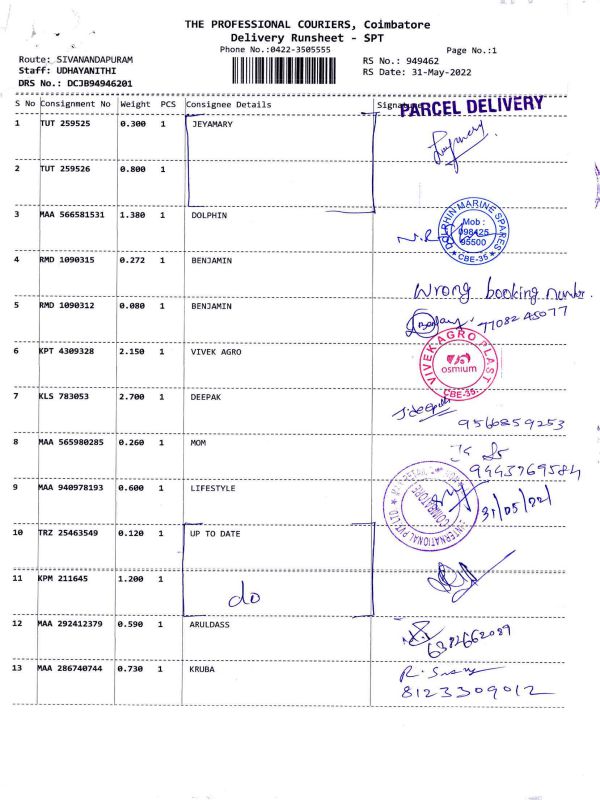 THE PROFESSIONAL COURIERS, Coimbatore
Delivery Runsheet - SPT
Phone No.:0422-3505555
Page No.:1
Route: SIVANANDAPURAM
RS No.: 949462
Staff: UDHAYANITHI
RS Date: 31-May-2022
DRS No.: DCJB94946201
S No Consignment No Weight PCS Consignee Details Signature
PARCEL DELIVERY
1 TUT 259525 0.300 1 JEYAMARY
2 TUT 259526 0.800 1
3 MAA 566581531 1.380 1 DOLPHIN
DOLPHIN MARINE SPARES
Mob :
098425
95500
* CBE-35 *
4 RMD 1090315 0.272 1 BENJAMIN
Wrong booking number.
5 RMD 1090312 0.080 1 BENJAMIN
7708245077
6 KPT 4309328 2.150 1 VIVEK AGRO
VIVEK AGRO PLAST
osmium
CBE-35.
7 KLS 783053 2.700 1 DEEPAK
9566859253
8 MAA 565980285 0.260 1 MOM
9443769584
9 MAA 940978193 0.600 1 LIFESTYLE
INTERNATIONAL PVT. LTD.
COIMBATORE
31/05/22
10 TRZ 25463549 0.120 1 UP TO DATE
11 KPM 211645 1.200 1
do
12 MAA 292412379 0.590 1 ARULDASS
6382662089
13 MAA 286740744 0.730 1 KRUBA
8123309012